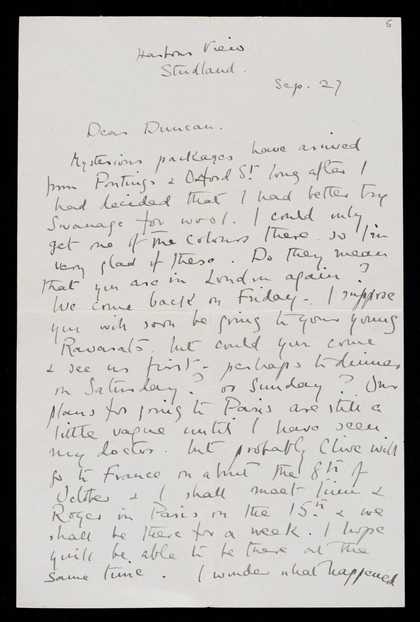 6
Harbour View
Studland.
Sep. 27
Dear Duncan.
Mysterious packages have arrived
from Pontings & Oxford St long after I
had decided that I had better try
Swanage for wool. I could only
get one of the colours there so I'm
very glad of these. Do they mean
that you are in London again?
We come back on Friday - I suppose
you will soon be going to your young
but could you come
& see us first - perhaps to dinner
on Saturday? or Sunday? Our
plans for going to Paris are still a
little vague until I have seen
my doctor. but probably Clive will
go to France on about the 8th of
October & I shall meet him &
Roger in Paris on the 15th & we
shall be there for a week. I hope
you'll be able to be there at the
same time. I wonder what happened